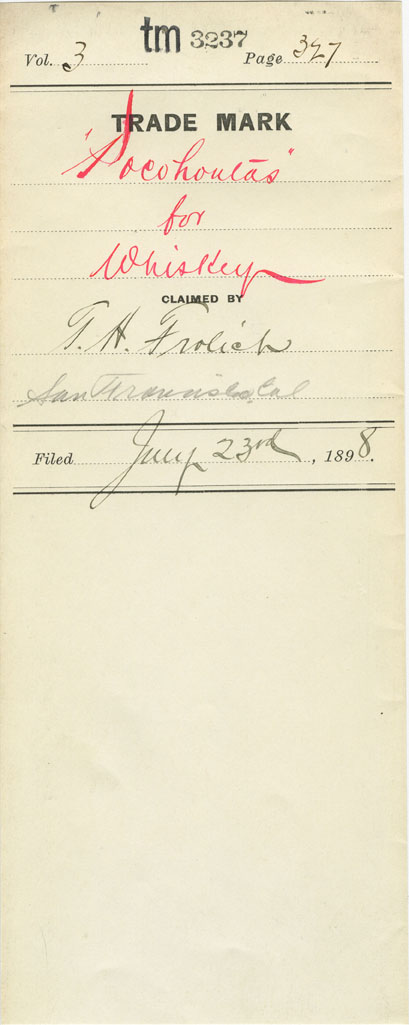 tm 3237
Vol. 3 Page 327
TRADE MARK
"Pocohontas"
for
Whiskey
CLAIMED BY
T. H. Frolich
San Francisco, Cal
Filed July 23rd, 1898.